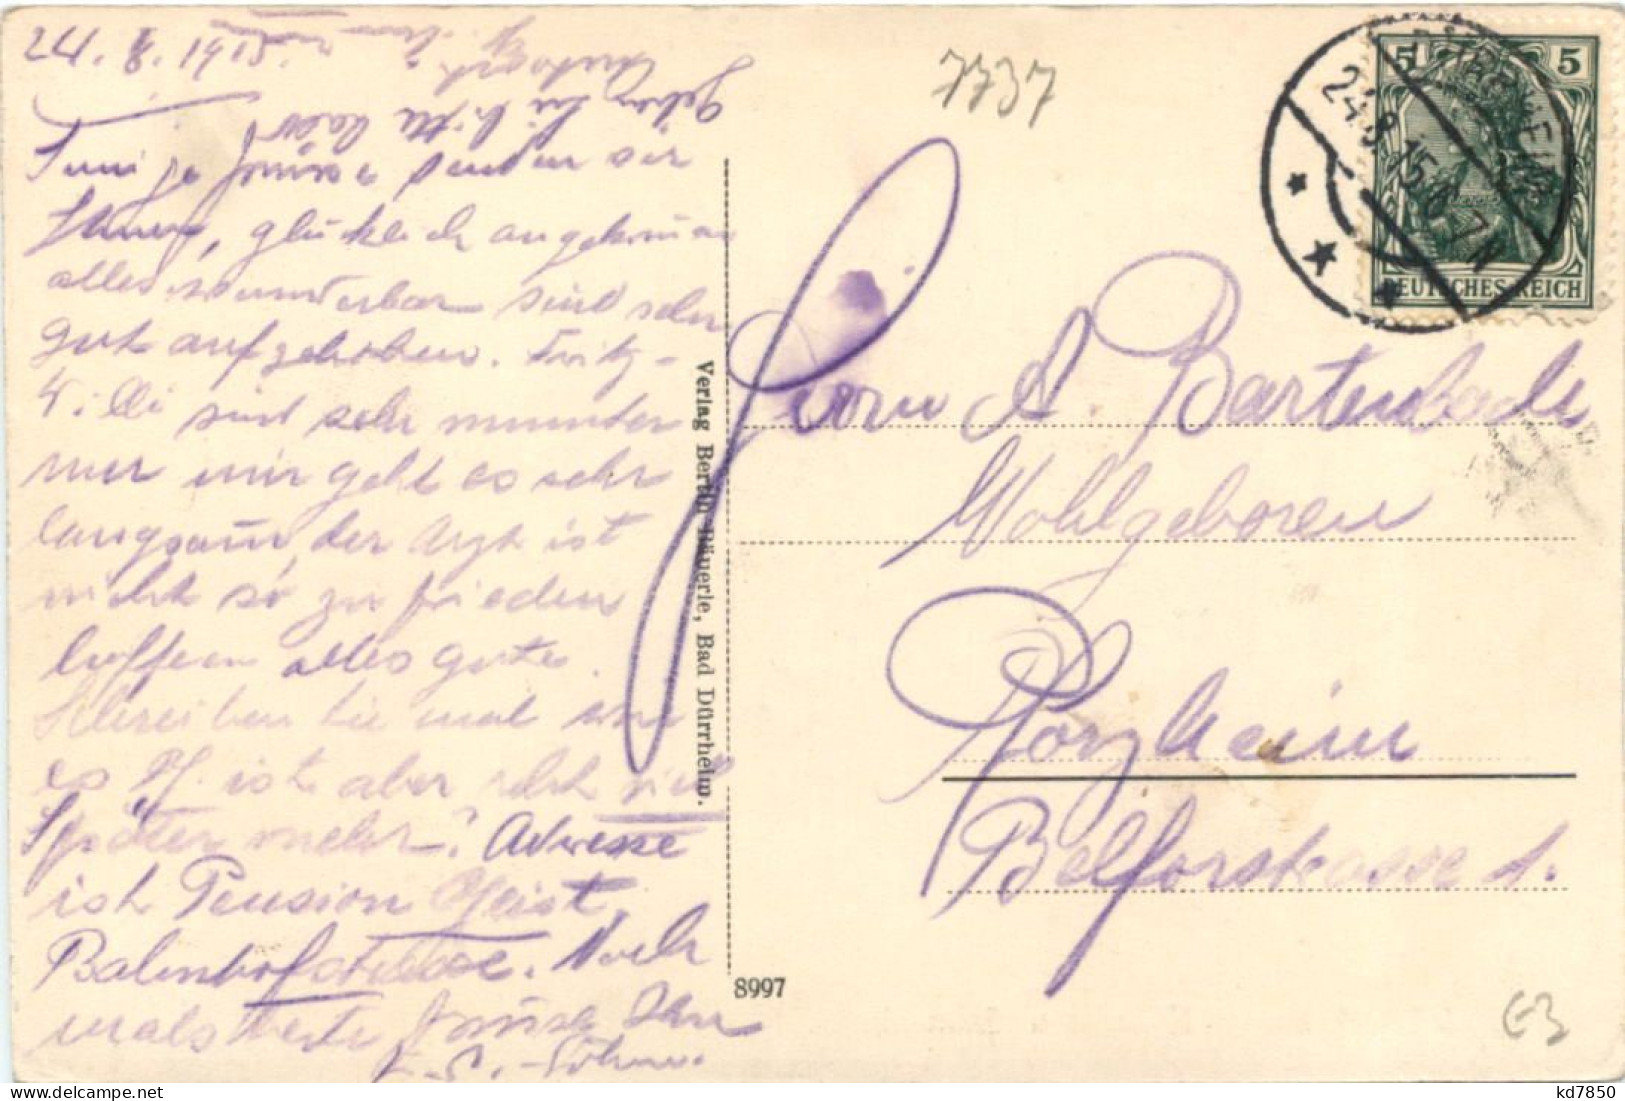 24. 8. 1915.
Innige Grüsse senden wir
Ihnen, glücklich angekommen
alles wunderbar sind sehr
gut aufgehoben. Fritz-
Willi sind sehr munter
nur mir geht es sehr
langsam, der Arzt ist
nicht so zufrieden
hoffen alles gute.
Schreiben Sie mal wie
es ist aber
Später mehr. Adresse
ist Pension Geist,
Bahnhofstrasse. Noch
mals beste Grüsse Ihr
Verlag Berth. Bäuerle, Bad Dürrheim.
8997
7737
5 5
DEUTSCHES REICH
DÜRRHEIM
24.8.15. 6-7 N
Herrn A. Bartenbach
Wohlgeboren
Pforzheim
Belforstrasse 1.
€3
kd7850